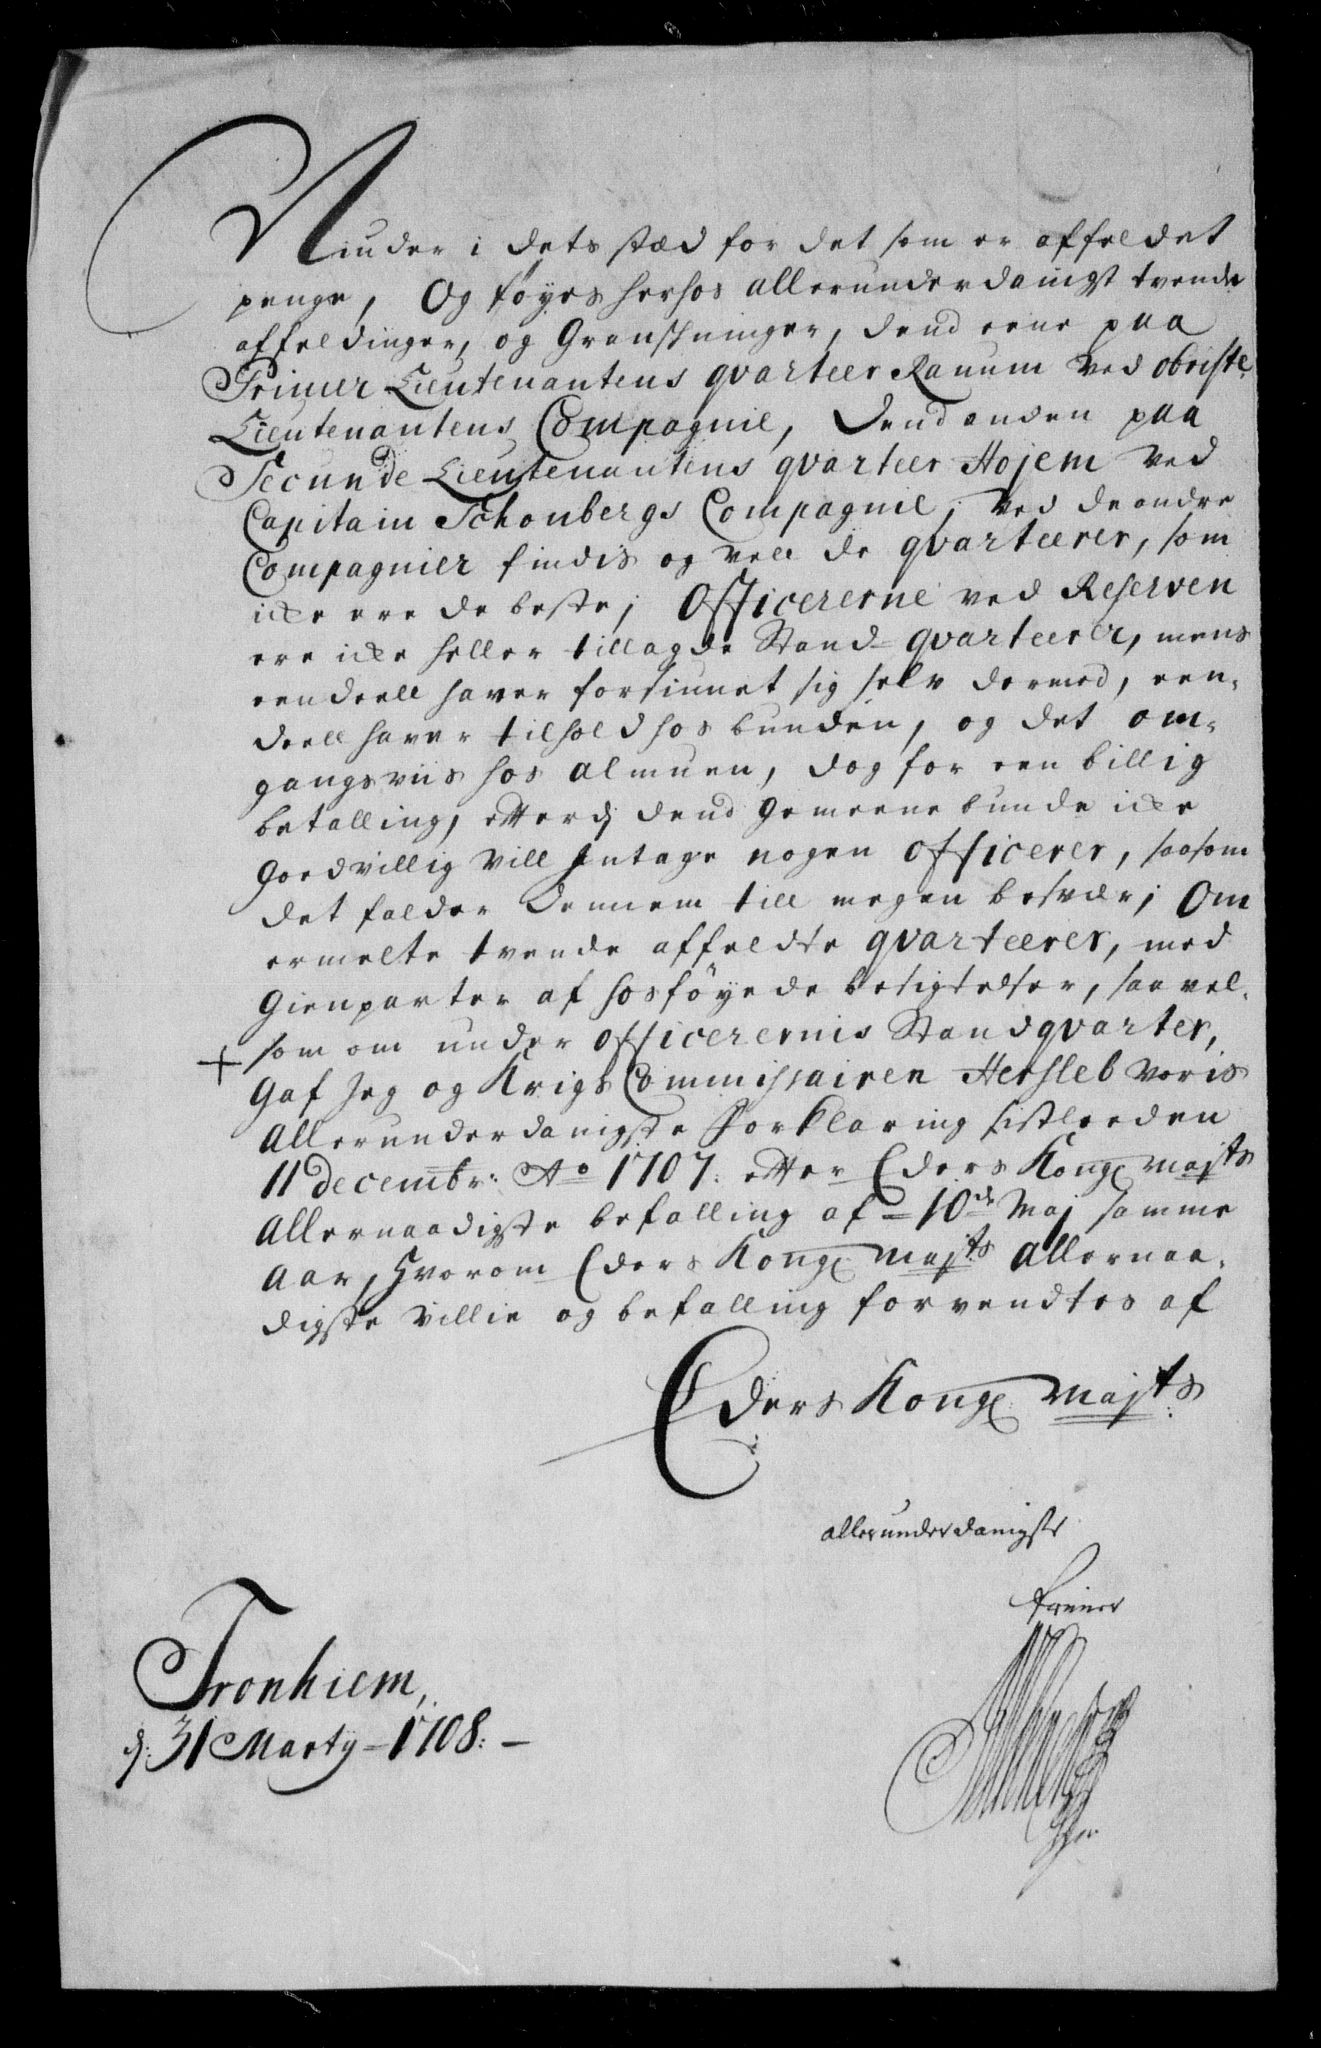 Niuder i dets stæd for det som er affeldet
penge, Og föyes herhos allerunderdanigst tvende
affeldinger, og Granskninger, dend eene paa
Primier Lieutenantens qvarteer Ranum ved obriste
Lieutenantens Compagnie, dend anden paa
Secunde Lieutenantens qvarteer Hojem ved
Capitain Schonbergs Compagnie, ved de andre
Compagnier findis og vell de qvarteerer, som
icke ere de beste; Officererne ved Reserven
ere icke heller tillagde Stand-qvarteerer, mens
eendeell haver forsiunet sig selv dermed, een-
deell haver tilhold hos bunden, og det om-
gangsviis hos almuen, dog for een billig
betalling, efterdj dend gemeene bunde icke
goedvillig vill Intage nogen officerer, saasom
det falder dennem till megen besvær; Om
ermelte tvende affeldte qvarteerer, med
Gienparter af hosföyede besigtelser, saavel-
som om under officerernis Standqvarter,
Gaf Jeg og Krigs Commissairen Hersleb voris
Allerunderdanigste Forklaring sistleeden
11 decembr: Ao 1707. efter Eders Kongl. majts
Allernaadigste befalling af 10de Maj samme
Aar, Hvorom Eders Kongl. majts Allernaa-
digste villie og befalling forvendtes af
Eders Kongl. Majts
allerunderdanigste
Tronhiem,
d: 31 Marty 1708: